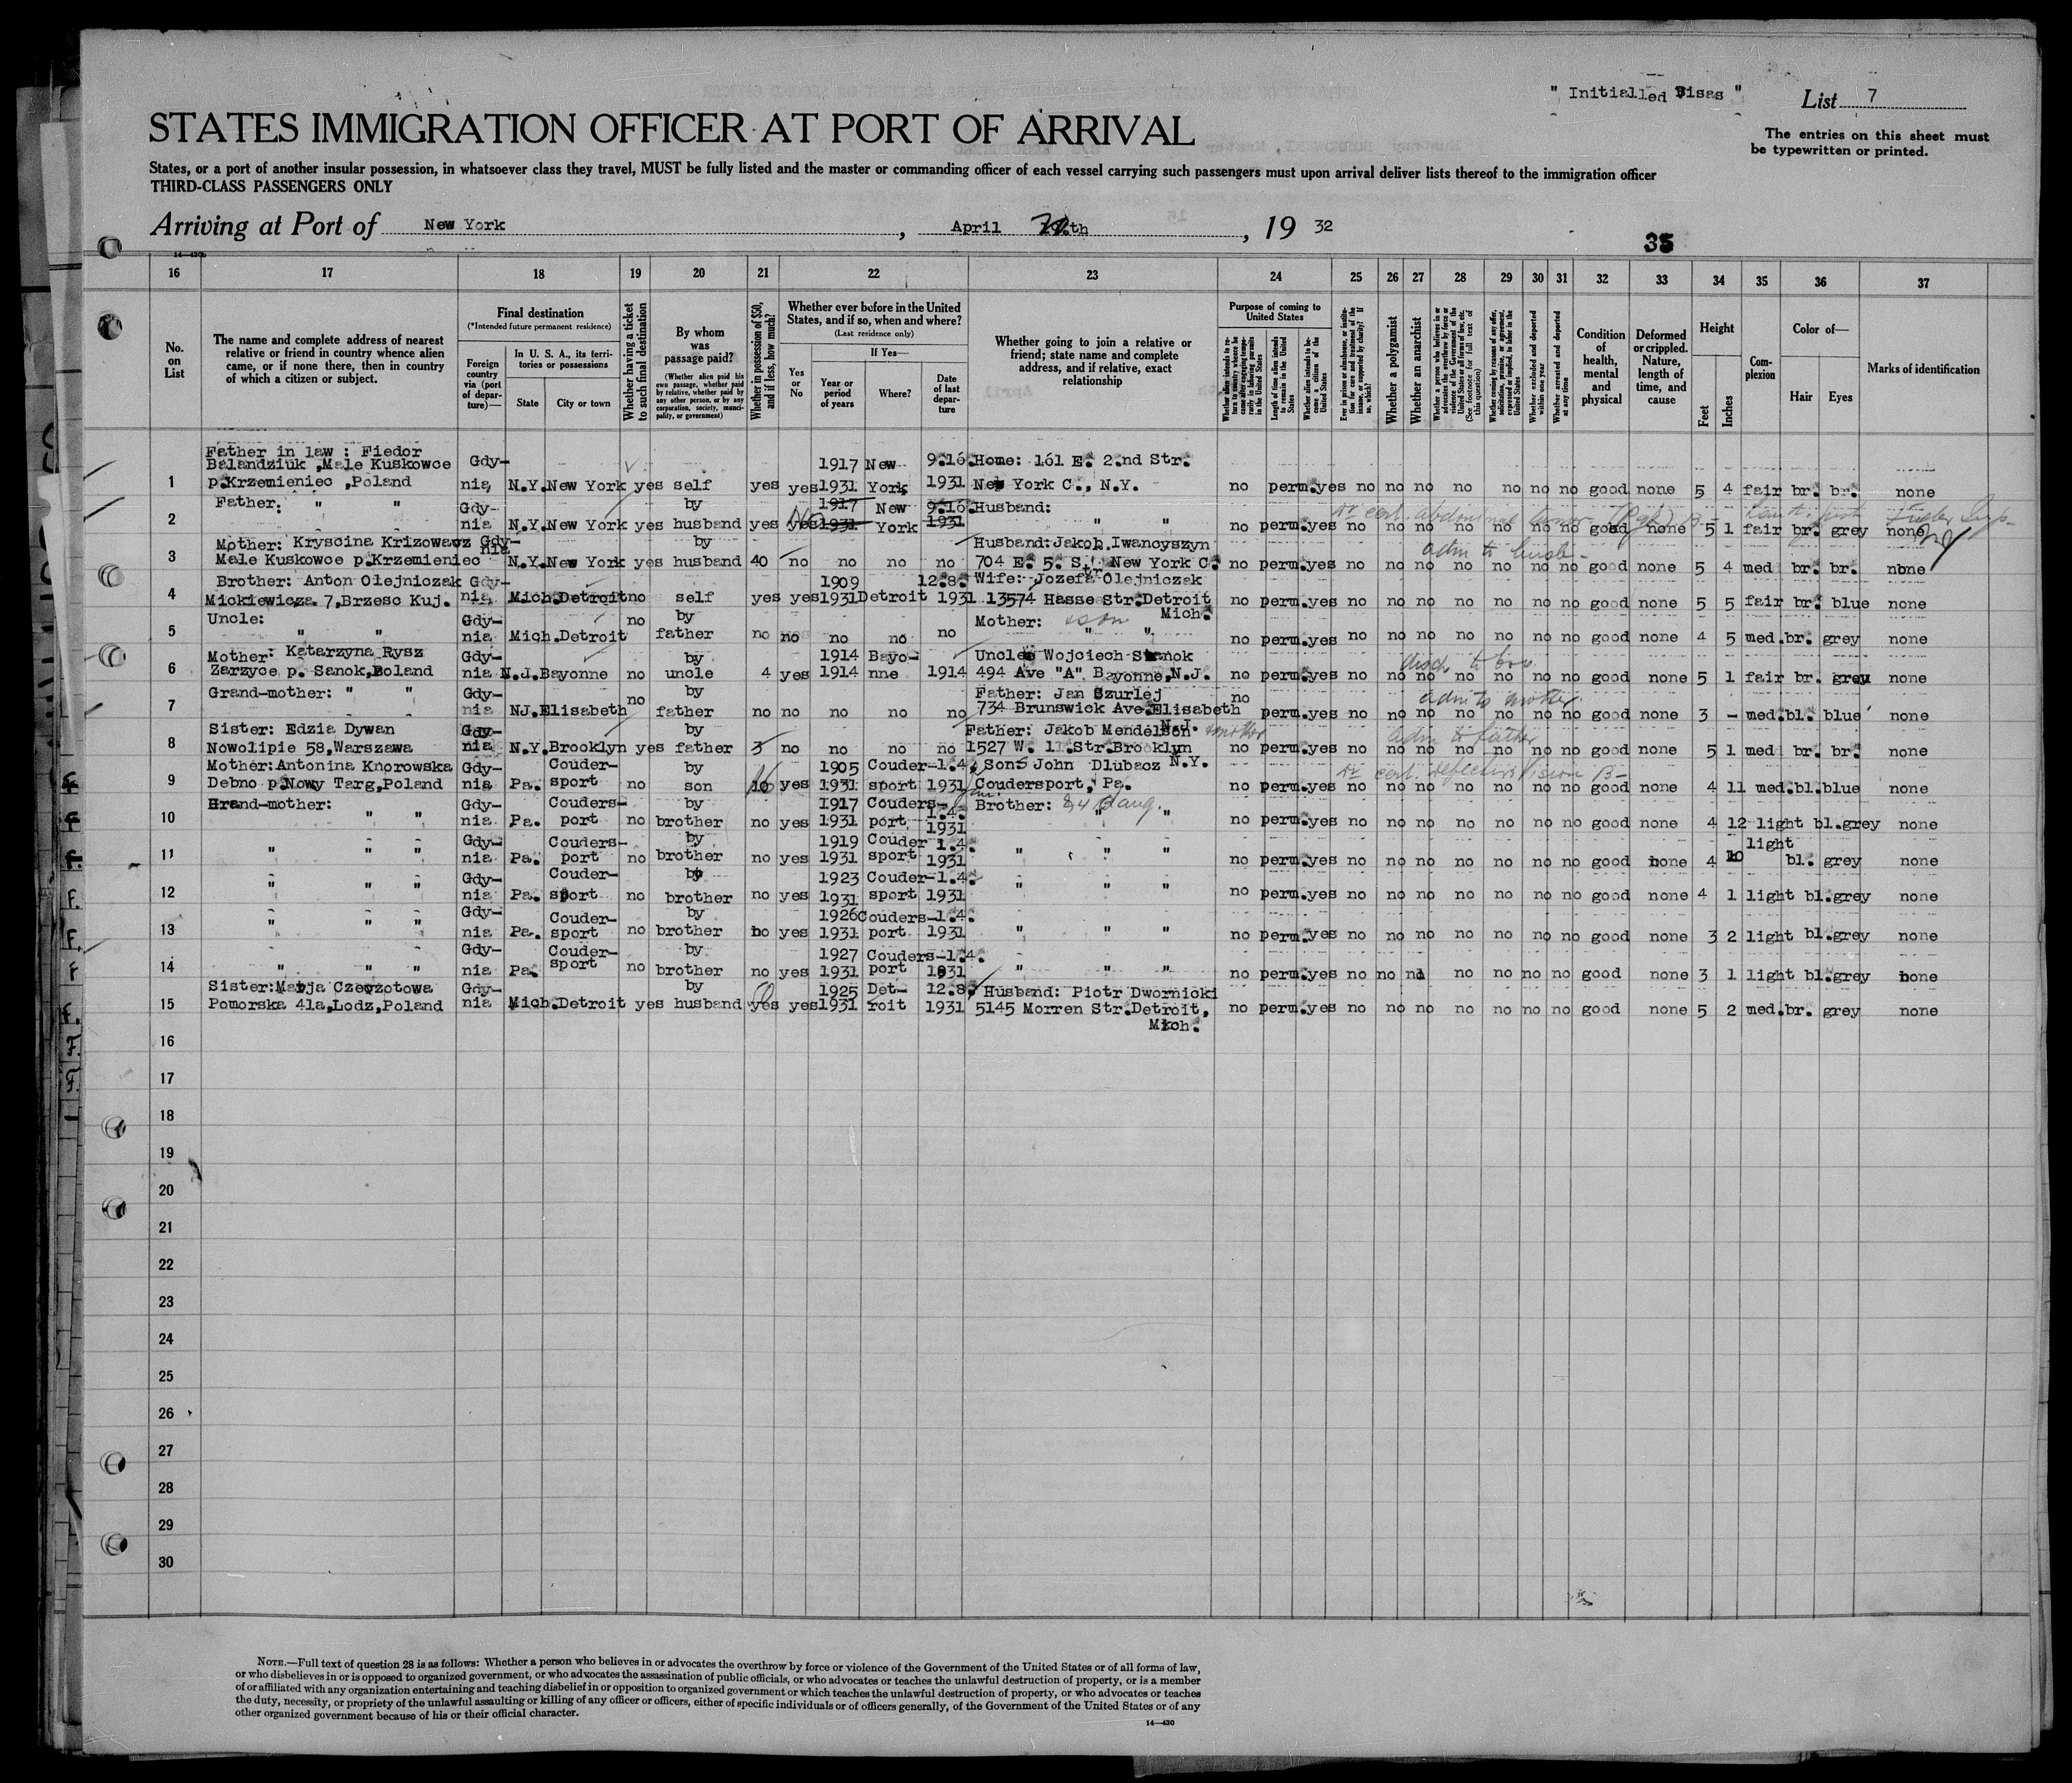 " Initialled Visas "
List 7
STATES IMMIGRATION OFFICER AT PORT OF ARRIVAL
The entries on this sheet must
be typewritten or printed.
States, or a port of another insular possession, in whatsoever class they travel, MUST be fully listed and the master or commanding officer of each vessel carrying such passengers must upon arrival deliver lists thereof to the immigration officer
THIRD-CLASS PASSENGERS ONLY
Arriving at Port of New York , April th , 19 32
35
14—430b
16 17 18 19 20 21 22 23 24 25 26 27 28 29 30 31 32 33 34 35 36 37
No. on List
The name and complete address of nearest relative or friend in country whence alien came, or if none there, then in country of which a citizen or subject.
Final destination
(*Intended future permanent residence)
Foreign country via (port of departure)—
In U. S. A., its territories or possessions
State
City or town
Whether having a ticket to such final destination
By whom was passage paid?
(Whether alien paid his own passage, whether paid by relative, whether paid by any other person, or by any corporation, society, municipality, or government)
Whether in possession of $50, and if less, how much?
Whether ever before in the United States, and if so, when and where?
(Last residence only)
Yes or No
If Yes—
Year or period of years
Where?
Date of last departure
Whether going to join a relative or friend; state name and complete address, and if relative, exact relationship
Purpose of coming to United States
Length of time alien intends to remain in the United States
Whether alien intends to become a citizen of the United States
Whether a polygamist
Whether an anarchist
Whether excluded and deported within one year
Whether arrested and deported at any time
Condition of health, mental and physical
Deformed or crippled. Nature, length of time, and cause
Height
Feet
Inches
Complexion
Color of—
Hair
Eyes
Marks of identification
Father in law : Fiedor
Balandziuk ,Male Kuskowce Gdy- 1917 New 9.16. Home: 161 E. 2.nd Str.
1 p.Krzemieniec ,Poland nia, N.Y. New York yes self yes yes 1931 York 1931 New York C., N.Y. no perm. yes no no no no no no no good none 5 4 fair br. br. none
Father: " " Gdy- by 1917 New 9.16. Husband:
2 nia N.Y. New York yes husband yes yes 1931 York 1931 " " no perm. yes no no no no no no no good none 5 1 fair br. grey none
Mother: Kryscina Krizowacz Gdy- by Husband: Jakob Iwancyszyn
adm to husb-
3 Male Kuskowce p.Krzemieniec nia N.Y. New York yes husband 40 no no no no 704 E. 5. Str. New York C. no perm. yes no no no no no no no good none 5 4 med br. br. none
Brother: Anton Olejniczak Gdy- 1909 12.8. Wife: Jozefa Olejniczak
4 Mickiewicza 7,Brzesc Kuj. nia Mich. Detroit no self yes yes 1931 Detroit 1931 13574 Hasse Str. Detroit no perm. yes no no no no no no no good none 5 5 fair br. blue none
Mich.
Uncle: Gdy- no by Mother:
5 " " nia Mich. Detroit father no no no no no " " no perm. yes no no no no no no no good none 4 5 med. br. grey none
Mother: Katarzyna Rysz Gdy- by 1914 Bayo- Uncle Wojciech
6 Zarzyce p. Sanok,Poland nia N.J. Bayonne no uncle 4 yes 1914 nne 1914 494 Ave "A" Bayonne,N.J. no perm. yes no no no no no no no good none 5 1 fair br. grey none
Grand-mother: " " Gdy- no by Father: Jan Szurlej no
adm to mother
7 nia NJ. Elisabeth father no no no no no 734 Brunswick Ave.Elisabeth perm. yes no no no no no no no good none 3 - med. bl. blue none
N.J.
Sister: Edzia Dywan Gdy- by Father: Jakob Mendelson
adm to father
8 Nowolipie 58,Warszawa nia N.Y. Brooklyn yes father 3 no no no no 1527 W. 1. Str. Brooklyn no perm. yes no no no no no no no good none 5 1 med br. br. none
N.Y.
Mother: Antonina Knorowska Gdy- Couder- by 1905 Couder- 1.4. Son: John Dlubacz
cert. defective vision B-
9 Debno p.Nowy Targ,Poland nia Pa. sport no son yes 1931 sport 1931 Coudersport, Pa. no perm. yes no no no no no no no good none 4 11 med. bl. blue none
Grand-mother: Gdy- Couders- by 1917 Couders- 1.4. Brother:
10 " " nia Pa. port no brother no yes 1931 port 1931 " " no perm. yes no no no no no no no good none 4 12 light bl. grey none
Gdy- Couders- by 1919 Couder 1.4. light
11 " " " nia Pa. port no brother no yes 1931 sport 1931 " " " no perm. yes no no no no no no no good none 4 10 bl. grey none
Gdy- Couder- by 1923 Couder- 1.4.
12 " " " nia Pa. sport no brother no yes 1931 sport 1931 " " " no perm. yes no no no no no no no good none 4 1 light bl. grey none
Gdy- Couder- by 1926 Couders- 1.4.
13 " " " nia Pa. sport no brother no yes 1931 port 1931 " " " no perm. yes no no no no no no no good none 3 2 light bl. grey none
Gdy- Couder- by 1927 Couders- 1.4.
14 " " " nia Pa. sport no brother no yes 1931 port 1931 " " " no perm. yes no no no no no no no good none 3 1 light bl. grey none
Sister: Marja Czewzotowa Gdy- by 1925 Det- 12.8. Husband: Piotr Dwornicki
15 Pomorska 41a,Lodz,Poland nia Mich. Detroit yes husband yes yes 1931 roit 1931 5145 Morren Str. Detroit, no perm. yes no no no no no no no good none 5 2 med. br. grey none
Mich.
16
17
18
19
20
21
22
23
24
25
26
27
28
29
30
NOTE.—Full text of question 28 is as follows: Whether a person who believes in or advocates the overthrow by force or violence of the Government of the United States or of all forms of law,
or who disbelieves in or is opposed to organized government, or who advocates the assassination of public officials, or who advocates or teaches the unlawful destruction of property, or is a member
of or affiliated with any organization entertaining and teaching disbelief in or opposition to organized government or which teaches the unlawful destruction of property, or who advocates or teaches
the duty, necessity, or propriety of the unlawful assaulting or killing of any officer or officers, either of specific individuals or of officers generally, of the Government of the United States or of any
other organized government because of his or their official character.
14—430